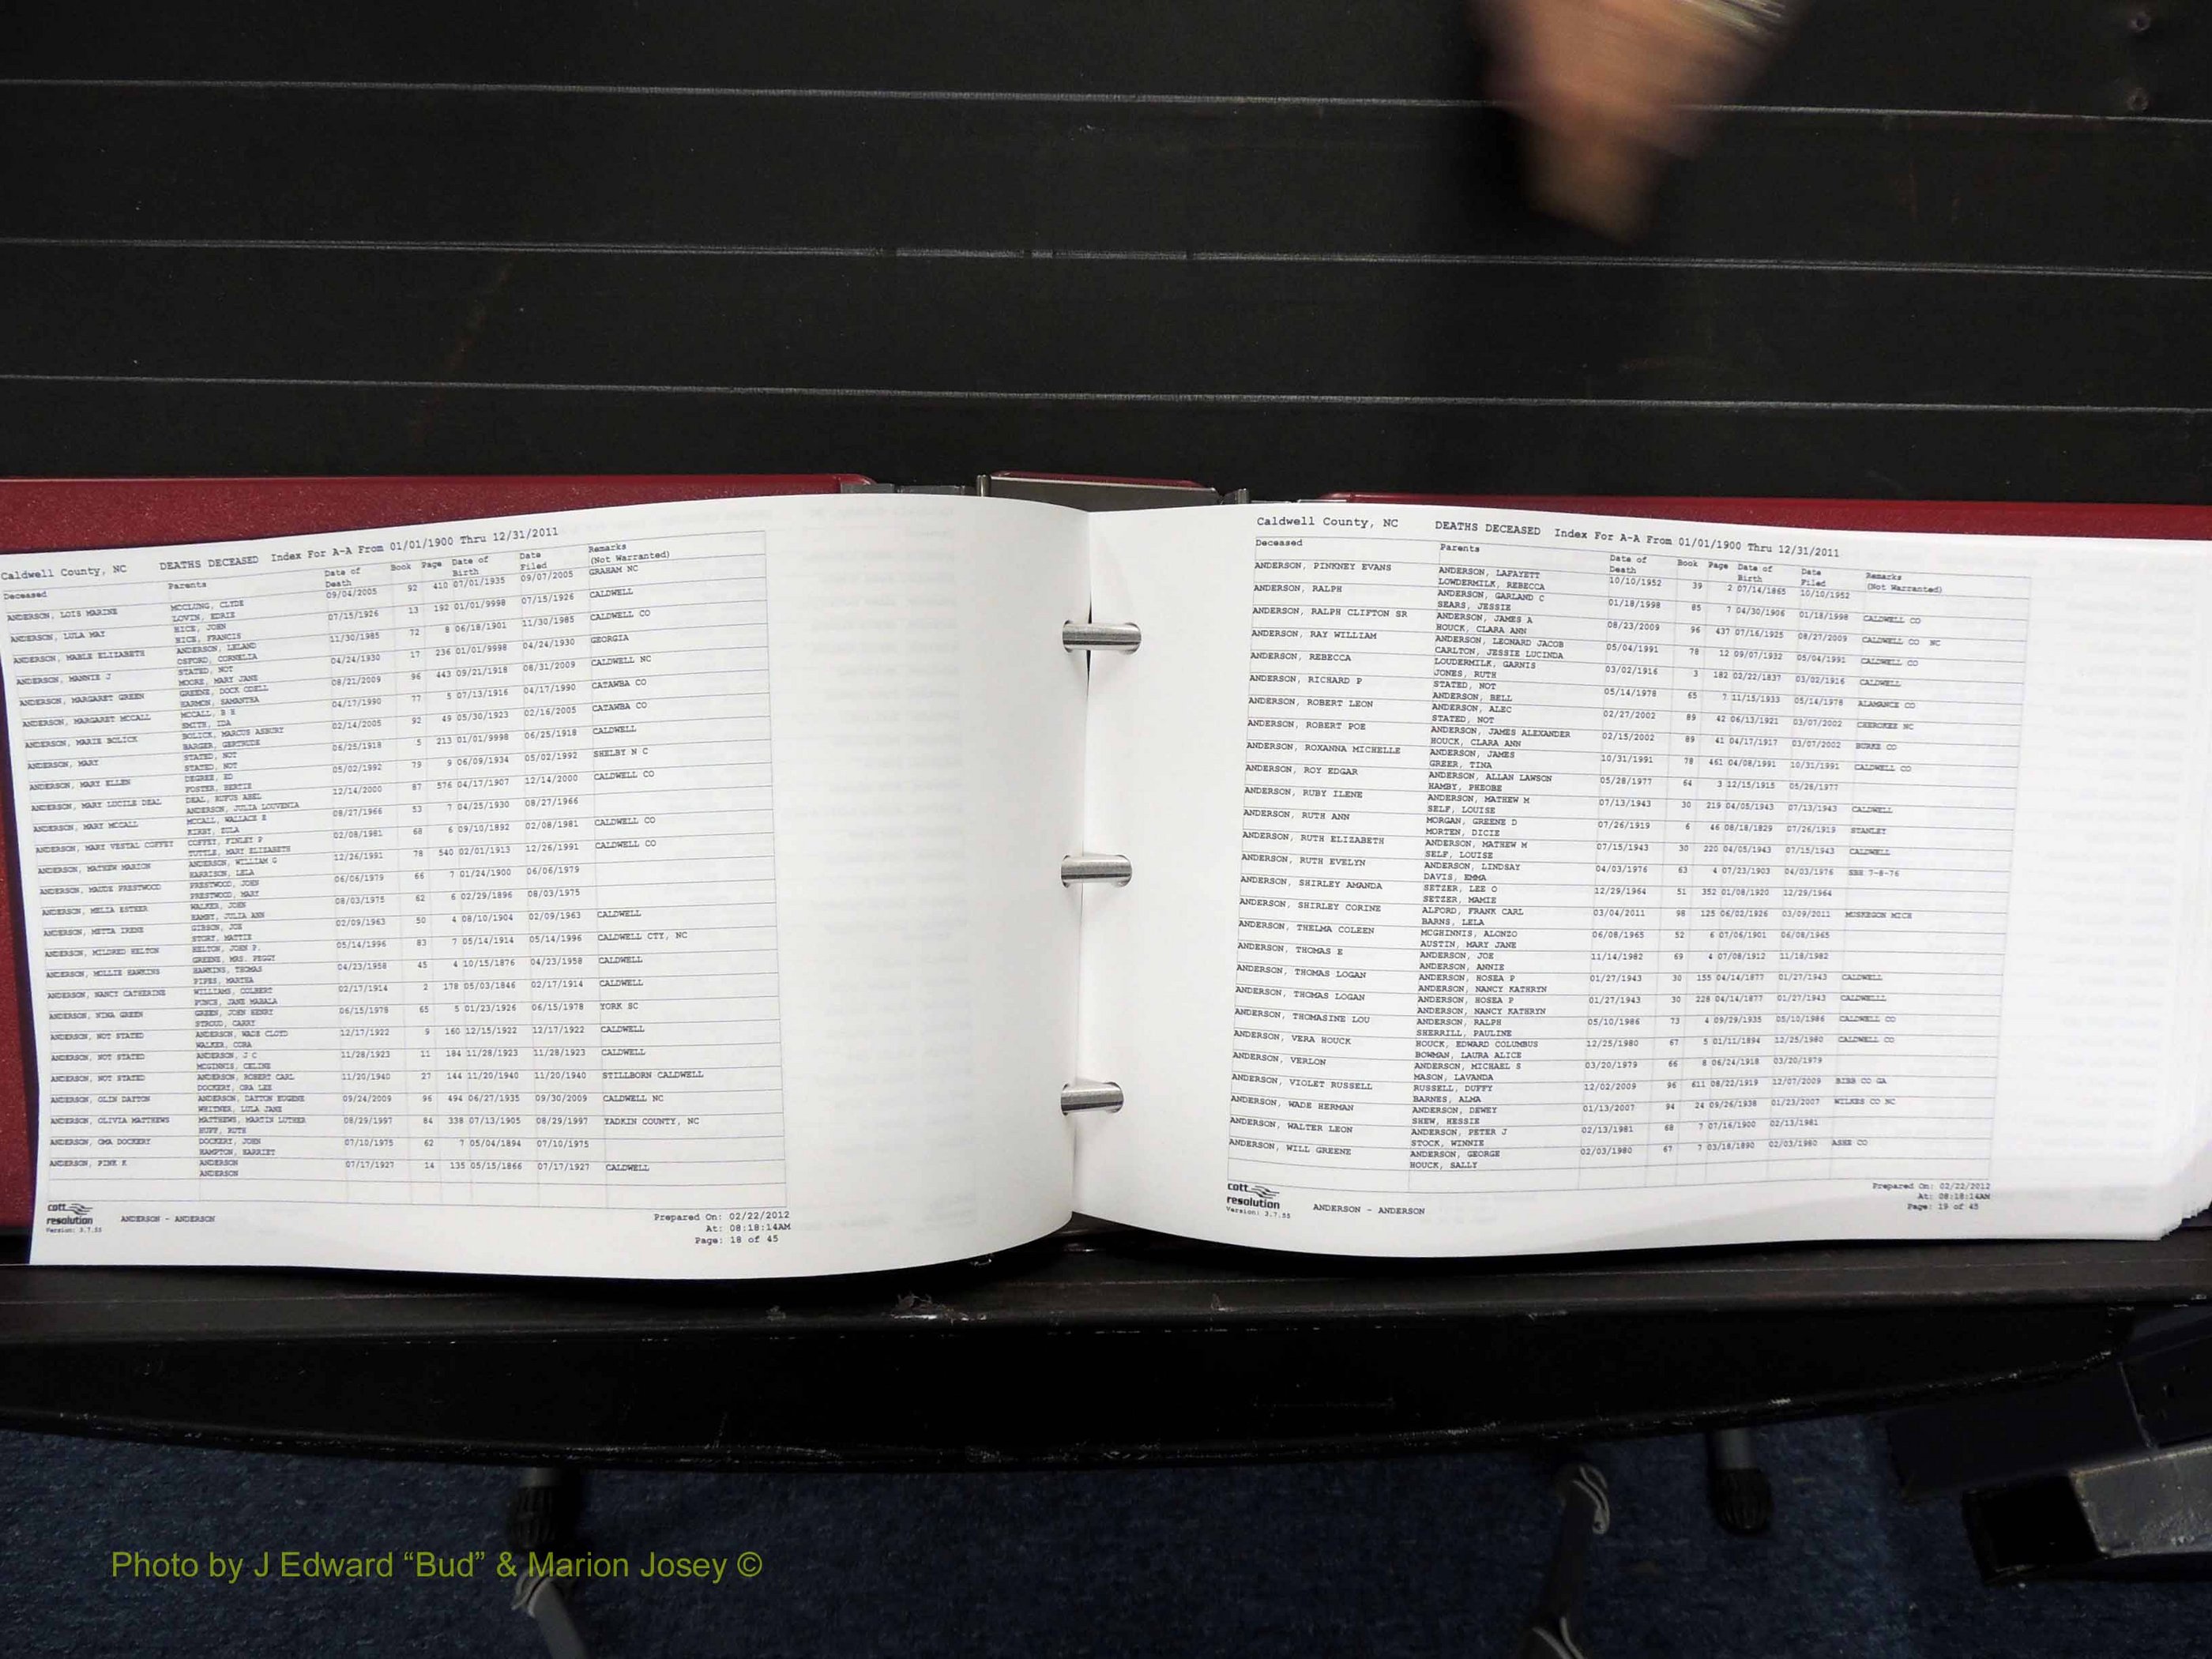 Caldwell County, NC DEATHS DECEASED Index For A-A From 01/01/1900 Thru 12/31/2011
Deceased Parents Date of Death Book Page Date of Birth Date Filed Remarks (Not Warranted)
ANDERSON, LOIS MARINE MCCLUNG, CLYDE 09/04/2005 92 410 07/01/1935 09/07/2005 GRAHAM NC
LOVIN, EDRIE
ANDERSON, LULA MAY RICE, JOHN 07/15/1926 13 192 01/01/9998 07/15/1926 CALDWELL
RICE, FRANCIS
ANDERSON, MABLE ELIZABETH ANDERSON, LELAND 11/30/1985 72 8 06/18/1901 11/30/1985 CALDWELL CO
OSFORD, CORNELIA
ANDERSON, MANNIE J STATED, NOT 04/24/1930 17 236 01/01/9998 04/24/1930 GEORGIA
MOORE, MARY JANE
ANDERSON, MARGARET GREEN GREENE, DOCK ODELL 08/21/2009 96 443 09/21/1918 08/31/2009 CALDWELL NC
HARMON, SAMANTHA
ANDERSON, MARGARET MCCALL MCCALL, B H 04/17/1990 77 5 07/13/1916 04/17/1990 CATAWBA CO
SMITH, IDA
ANDERSON, MARIE BOLICK BOLICK, MARCUS ASBURY 02/14/2005 92 49 05/30/1923 02/16/2005 CATAWBA CO
BARGER, GERTRUDE
ANDERSON, MARY STATED, NOT 06/25/1918 5 213 01/01/9998 06/25/1918 CALDWELL
STATED, NOT
ANDERSON, MARY ELLEN DEGREE, ED 05/02/1992 79 9 06/09/1934 05/02/1992 SHELBY N C
FOSTER, BERTIE
ANDERSON, MARY LUCILE DEAL DEAL, RUFUS ABEL 12/14/2000 87 576 04/17/1907 12/14/2000 CALDWELL CO
ANDERSON, JULIA LOUVENIA
ANDERSON, MARY MCCALL MCCALL, WALLACE E 08/27/1966 53 7 04/25/1930 08/27/1966
KIRBY, EULA
ANDERSON, MARY VESTAL COFFEY COFFEY, FINLEY P 02/08/1981 68 6 09/10/1892 02/08/1981 CALDWELL CO
TUTTLE, MARY ELIZABETH
ANDERSON, MATHEW MARION ANDERSON, WILLIAM G 12/26/1991 78 540 02/01/1913 12/26/1991 CALDWELL CO
HARRISON, LELA
ANDERSON, MAUDE PRESTWOOD PRESTWOOD, JOHN 06/06/1979 66 7 01/24/1900 06/06/1979
PRESTWOOD, MARY
ANDERSON, MELIA ESTHER WALKER, JOHN 08/03/1975 62 6 02/29/1896 08/03/1975
HAMBY, JULIA ANN
ANDERSON, METTA IRENE GIBSON, JOE 02/09/1963 50 4 08/10/1904 02/09/1963 CALDWELL
STORY, MATTIE
ANDERSON, MILDRED HELTON HELTON, JOHN P. 05/14/1996 83 7 05/14/1914 05/14/1996 CALDWELL CTY, NC
GREENE, MRS. PEGGY
ANDERSON, MOLLIE HAWKINS HAWKINS, THOMAS 04/23/1958 45 4 10/15/1876 04/23/1958 CALDWELL
PIPES, MARTHA
ANDERSON, NANCY CATHERINE WILLIAMS, COLBERT 02/17/1914 2 178 05/03/1846 02/17/1914 CALDWELL
PUNCH, JANE MAHALA
ANDERSON, NINA GREEN GREEN, JOHN HENRY 06/15/1978 65 5 01/23/1926 06/15/1978 YORK SC
STROUD, CARRY
ANDERSON, NOT STATED ANDERSON, WADE CLOYD 12/17/1922 9 160 12/15/1922 12/17/1922 CALDWELL
WALKER, CORA
ANDERSON, NOT STATED ANDERSON, J C 11/28/1923 11 184 11/28/1923 11/28/1923 CALDWELL
MCGINNIS, CELINE
ANDERSON, NOT STATED ANDERSON, ROBERT CARL 11/20/1940 27 144 11/20/1940 11/20/1940 STILLBORN CALDWELL
DOCKERY, ORA LEE
ANDERSON, OLIN DAYTON ANDERSON, DAYTON EUGENE 09/24/2009 96 494 06/27/1935 09/30/2009 CALDWELL NC
WHITNER, LULA JANE
ANDERSON, OLIVIA MATTHEWS MATTHEWS, MARTIN LUTHER 08/29/1997 84 338 07/13/1905 08/29/1997 YADKIN COUNTY, NC
HUFF, RUTH
ANDERSON, OMA DOCKERY DOCKERY, JOHN 07/10/1975 62 7 05/04/1894 07/10/1975
HAMPTON, HARRIET
ANDERSON, PINK K ANDERSON 07/17/1927 14 135 05/15/1866 07/17/1927 CALDWELL
ANDERSON
cott resolution
Version: 3.7.55
ANDERSON - ANDERSON
Prepared On: 02/22/2012
At: 08:18:14AM
Page: 18 of 45
Caldwell County, NC DEATHS DECEASED Index For A-A From 01/01/1900 Thru 12/31/2011
Deceased Parents Date of Death Book Page Date of Birth Date Filed Remarks (Not Warranted)
ANDERSON, PINKNEY EVANS ANDERSON, LAFAYETT 10/10/1952 39 2 07/14/1865 10/10/1952
LOWDERMILK, REBECCA
ANDERSON, RALPH ANDERSON, GARLAND C 01/18/1998 85 7 04/30/1906 01/18/1998 CALDWELL CO
SEARS, JESSIE
ANDERSON, RALPH CLIFTON SR ANDERSON, JAMES A 08/23/2009 96 437 07/16/1925 08/27/2009 CALDWELL CO NC
HOUCK, CLARA ANN
ANDERSON, RAY WILLIAM ANDERSON, LEONARD JACOB 05/04/1991 78 12 09/07/1932 05/04/1991 CALDWELL CO
CARLTON, JESSIE LUCINDA
ANDERSON, REBECCA LOUDERMILK, GARNIS 03/02/1916 3 182 02/22/1837 03/02/1916 CALDWELL
JONES, RUTH
ANDERSON, RICHARD P STATED, NOT 05/14/1978 65 7 11/15/1933 05/14/1978 ALAMANCE CO
ANDERSON, BELL
ANDERSON, ROBERT LEON ANDERSON, ALEC 02/27/2002 89 42 06/13/1921 03/07/2002 CHEROKEE NC
STATED, NOT
ANDERSON, ROBERT POE ANDERSON, JAMES ALEXANDER 02/15/2002 89 41 04/17/1917 03/07/2002 BURKE CO
HOUCK, CLARA ANN
ANDERSON, ROXANNA MICHELLE ANDERSON, JAMES 10/31/1991 78 461 04/08/1991 10/31/1991 CALDWELL CO
GREER, TINA
ANDERSON, ROY EDGAR ANDERSON, ALLAN LAWSON 05/28/1977 64 3 12/15/1915 05/28/1977
HAMBY, PHEOBE
ANDERSON, RUBY ILENE ANDERSON, MATHEW M 07/13/1943 30 219 04/05/1943 07/13/1943 CALDWELL
SELF, LOUISE
ANDERSON, RUTH ANN MORGAN, GREENE D 07/26/1919 6 46 08/18/1829 07/26/1919 STANLEY
MORTEN, DICIE
ANDERSON, RUTH ELIZABETH ANDERSON, MATHEW M 07/15/1943 30 220 04/05/1943 07/15/1943 CALDWELL
SELF, LOUISE
ANDERSON, RUTH EVELYN ANDERSON, LINDSAY 04/03/1976 63 4 07/23/1903 04/03/1976 SBH 7-8-76
DAVIS, EMMA
ANDERSON, SHIRLEY AMANDA SETZER, LEE O 12/29/1964 51 352 01/08/1920 12/29/1964
SETZER, MAMIE
ANDERSON, SHIRLEY CORINE ALFORD, FRANK CARL 03/04/2011 98 125 06/02/1926 03/09/2011 MUSKEGON MICH
BARNS, LELA
ANDERSON, THELMA COLEEN MCGHINNIS, ALONZO 06/08/1965 52 6 07/06/1901 06/08/1965
AUSTIN, MARY JANE
ANDERSON, THOMAS E ANDERSON, JOE 11/14/1982 69 4 07/08/1912 11/18/1982
ANDERSON, ANNIE
ANDERSON, THOMAS LOGAN ANDERSON, HOSEA P 01/27/1943 30 155 04/14/1877 01/27/1943 CALDWELL
ANDERSON, NANCY KATHRYN
ANDERSON, THOMAS LOGAN ANDERSON, HOSEA P 01/27/1943 30 228 04/14/1877 01/27/1943 CALDWELL
ANDERSON, NANCY KATHRYN
ANDERSON, THOMASINE LOU ANDERSON, RALPH 05/10/1986 73 4 09/29/1935 05/10/1986 CALDWELL CO
SHERRILL, PAULINE
ANDERSON, VERA HOUCK HOUCK, EDWARD COLUMBUS 12/25/1980 67 5 01/11/1894 12/25/1980 CALDWELL CO
BOWMAN, LAURA ALICE
ANDERSON, VERLON ANDERSON, MICHAEL S 03/20/1979 66 8 06/24/1918 03/20/1979
MASON, LAVANDA
ANDERSON, VIOLET RUSSELL RUSSELL, DUFFY 12/02/2009 96 611 08/22/1919 12/07/2009 BIBB CO GA
BARNES, ALMA
ANDERSON, WADE HERMAN ANDERSON, DEWEY 01/13/2007 94 24 09/26/1938 01/23/2007 WILKES CO NC
SHEW, HESSIE
ANDERSON, WALTER LEON ANDERSON, PETER J 02/13/1981 68 7 07/16/1900 02/13/1981
STOCK, WINNIE
ANDERSON, WILL GREENE ANDERSON, GEORGE 02/03/1980 67 7 03/18/1890 02/03/1980 ASHE CO
HOUCK, SALLY
cott resolution
Version: 3.7.55
ANDERSON - ANDERSON
Prepared On: 02/22/2012
At: 08:18:14AM
Page: 19 of 45
Photo by J Edward “Bud” & Marion Josey ©